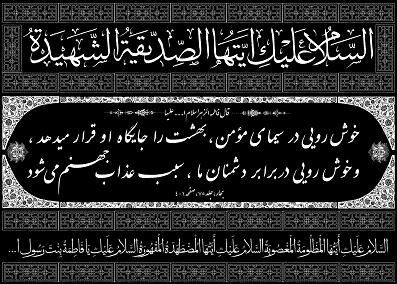 السَّلامُ عَلَيْكِ اَيَّتُهَا الصِّدّيقَةُ الشَّهيدَةُ
قال فاطمة الزهرا سلام ا... علیها
خوش رویی در سیمای مؤمن ، بهشت را جایگاه او قرار میدهد ،
و خوش رویی در برابر دشمنان ما ، سبب عذاب جهنم می‌شود
بحار، جلد ۷۵، صفحه ۴۰۱
السَّلامُ عَلَيْكِ اَيَّتُهَا الْمَظْلُومَةُ الْمَغْصُوبَةُ السَّلامُ عَلَيْكِ اَيَّتُهَا الْمُضْطَهَدَةُ الْمَقْهُورَةُ السَّلامُ عَلَيْكِ يا فاطِمَةُ بِنْتَ رَسُولِ ا...